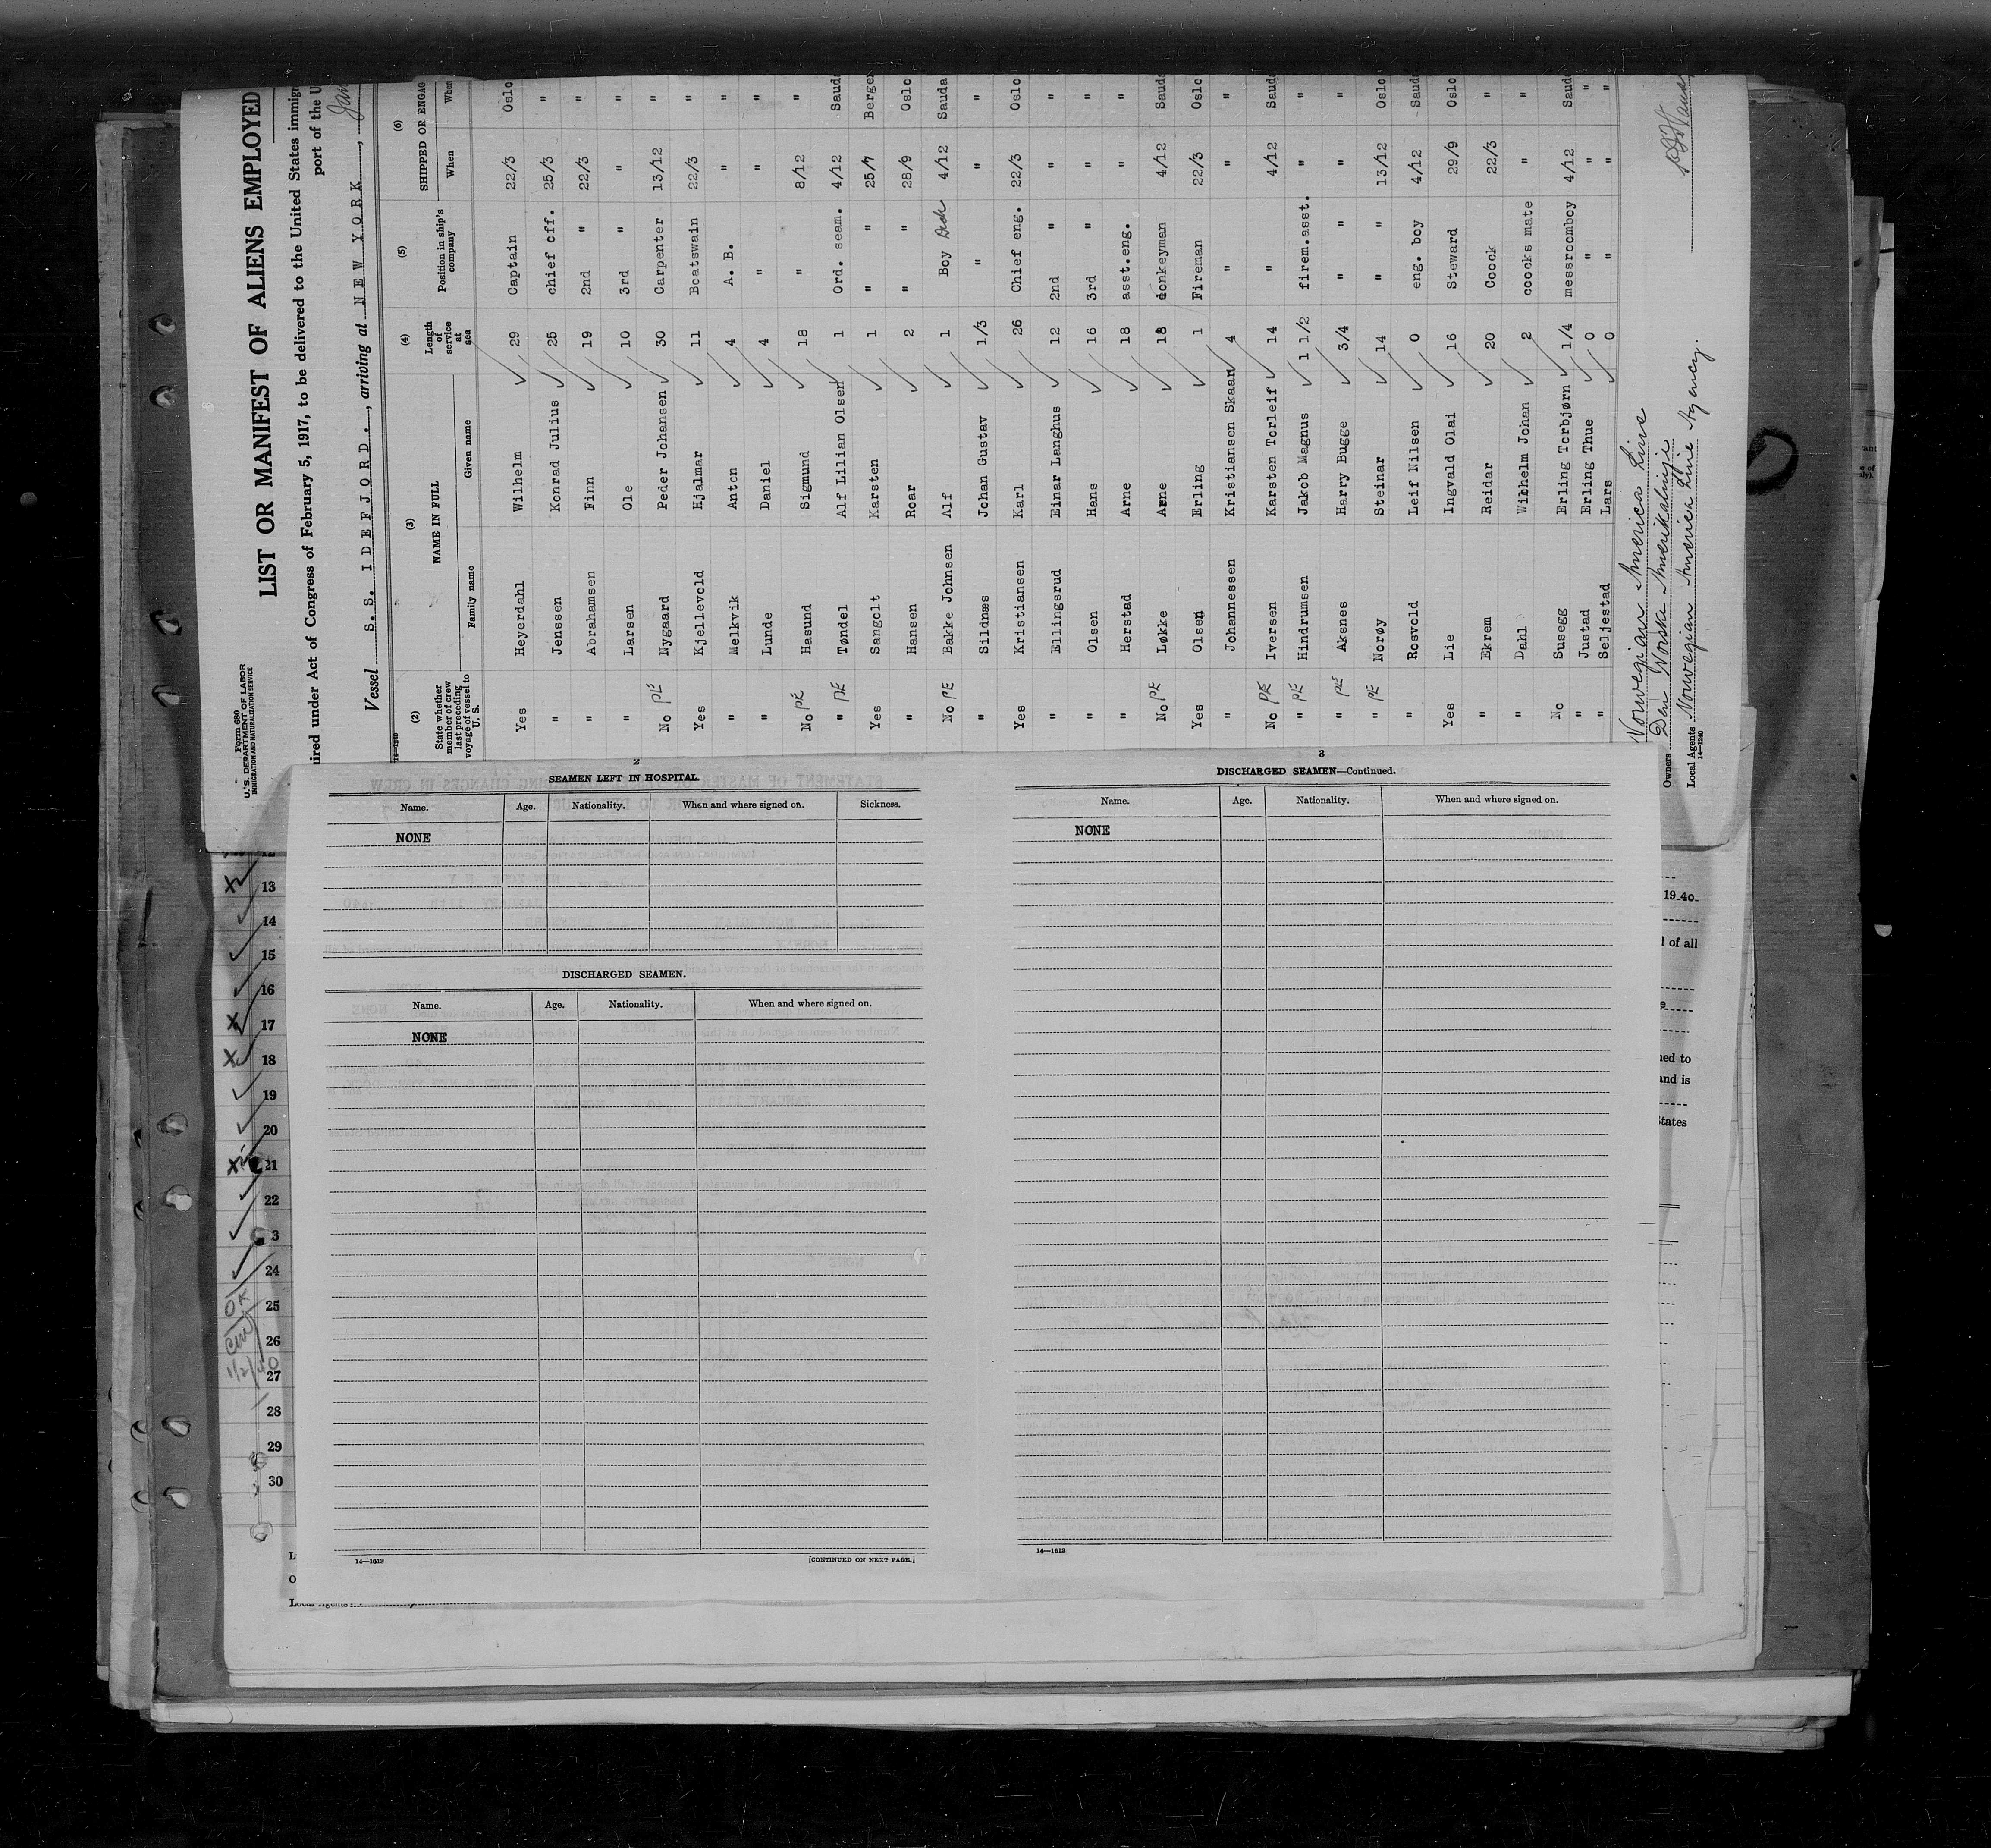 Form 680
U. S. DEPARTMENT OF LABOR
IMMIGRATION AND NATURALIZATION SERVICE
LIST OR MANIFEST OF ALIENS EMPLOYED
ired under Act of Congress of February 5, 1917, to be delivered to the United States immigr
port of the U
Vessel S.S. IDEFJORD., arriving at NEW YORK, Jan
14—1240
(2) (3) (4) (5) (6)
State whether member of crew last preceding voyage of vessel to U. S. NAME IN FULL Length of service at sea Position in ship's company SHIPPED OR ENGAG
Family name Given name When Wher
Yes Heyerdahl Wilhelm 29 Captain 22/3 Oslo
" Jenssen Konrad Julius 25 chief off. 25/3 "
" Abrahamsen Finn 19 2nd " 22/3 "
" Larsen Ole 10 3rd " " "
No PE Nygaard Peder Johansen 30 Carpenter 13/12 "
Yes Kjellevold Hjalmar 11 Boatswain 22/3 "
" Melkvik Anton 4 A. B. " "
" Lunde Daniel 4 " " "
No PE Hasund Sigmund 18 " 8/12 "
" PE Tøndel Alf Lilian Olsen 1 Ord. seam. 4/12 Saud
Yes Sangolt Karsten 1 " " 25/7 Berge
" Hansen Roar 2 " " 28/9 Oslo
No PE Bakke Johnsen Alf 1 Boy Deck 4/12 Sauda
" Sildnæs Johan Gustav 1/3 " " "
Yes Kristiansen Karl 26 Chief eng. 22/3 Oslo
" Ellingsrud Einar Langhus 12 2nd " " "
" Olsen Hans 16 3rd " " "
" Herstad Arne 18 asst.eng. " "
No PE Løkke Arne 18 donkeyman 4/12 Sauda
Yes Olsen Erling 1 Fireman 22/3 Oslo
" Johannessen Kristiansen Skaar 4 " " "
No PE Iversen Karsten Torleif 14 " 4/12 Saud
" PE Hindrumsen Jakob Magnus 1 1/2 firem.asst. " "
" PE Aksnes Harry Bugge 3/4 " " " "
" PE Norøy Steinar 14 " " 13/12 Oslo
" Rosvold Leif Nilsen 0 eng. boy 4/12 Saud
Yes Lie Ingvald Olai 16 Steward 29/9 Oslo
" Ekrem Reidar 20 Coock 22/3 "
" Dahl Wilhelm Johan 2 coocks mate " "
No Susegg Erling Torbjørn 1/4 messroomboy 4/12 Saud
" Justad Erling Thue 0 " " " "
" Seljestad Lars 0 " " "
Norwegian America Line
Owners Den Norske Amerikalinje
Local Agents Norwegian America Line Agency.
14—1240
2
SEAMEN LEFT IN HOSPITAL.
Name. Age. Nationality. When and where signed on. Sickness.
NONE
DISCHARGED SEAMEN.
Name. Age. Nationality. When and where signed on.
NONE
14—1613
[CONTINUED ON NEXT PAGE.]
3
DISCHARGED SEAMEN—Continued.
Name. Age. Nationality. When and where signed on.
NONE
14—1613
13
14
15
16
17
18
19
20
21
22
3
24
25
26
27
28
29
30
OK
1/2/40
L
O
Local Agents
1940
l of all
ned to
and is
States